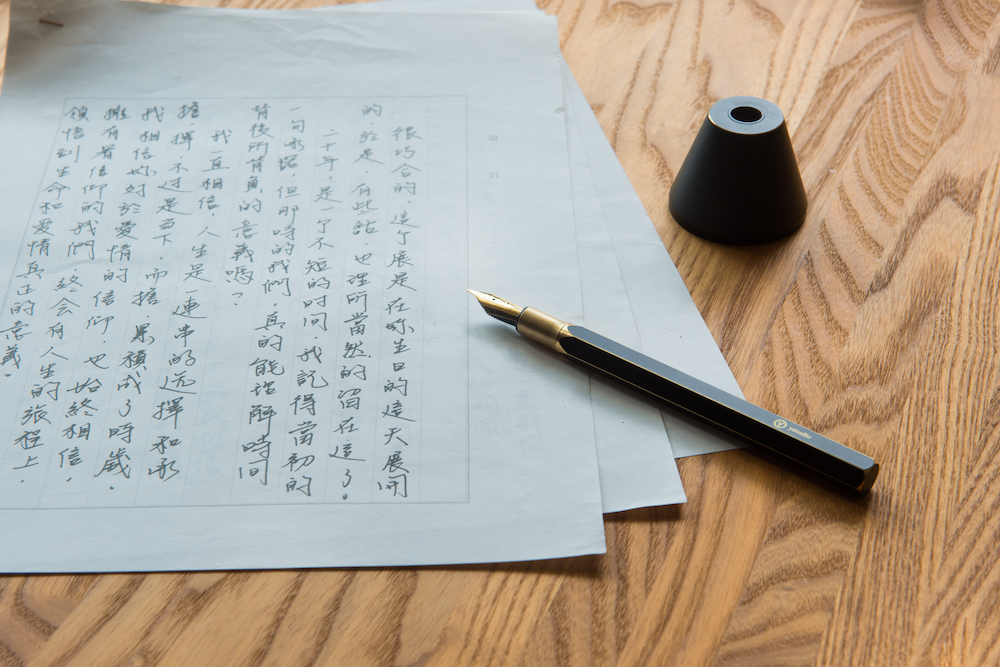 很巧合的,這个展是在你生日的這天展開
的,於是,有些話,也理所當然的留在這了。
二十年,是一个不短的时间,我記得當初的
一句承諾,但那時的我們,真的能理解時間
背後所背負的意義嗎?
我一直相信,人生是一連串的选擇和承
擔,擇,不过是当下,而擔,累積成了時歲。
我相信妳对於愛情的信仰,也始終相信,
擁有著信仰的我們,終会有人生的旅程上,
領悟到生命和愛情真正的意義。
ystudio